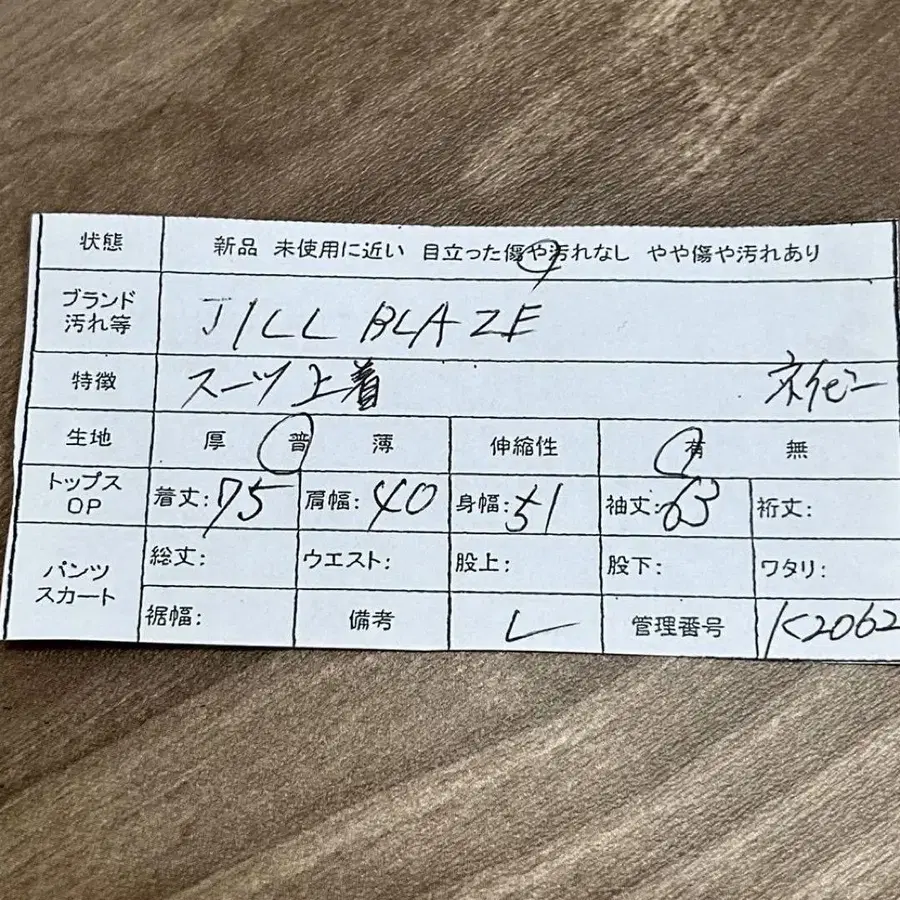 状態 新品 未使用に近い 目立った傷や汚れなし やや傷や汚れあり
ブランド
汚れ等 JILL BLAZE
特徴 スーツ上着 ネイビー
生地 厚 普 薄 伸縮性 有 無
トップス
OP 着丈:75 肩幅:40 身幅:51 袖丈:63 裄丈:
パンツ
スカート 総丈: ウエスト: 股上: 股下: ワタリ:
裾幅: 備考 L 管理番号 K2062